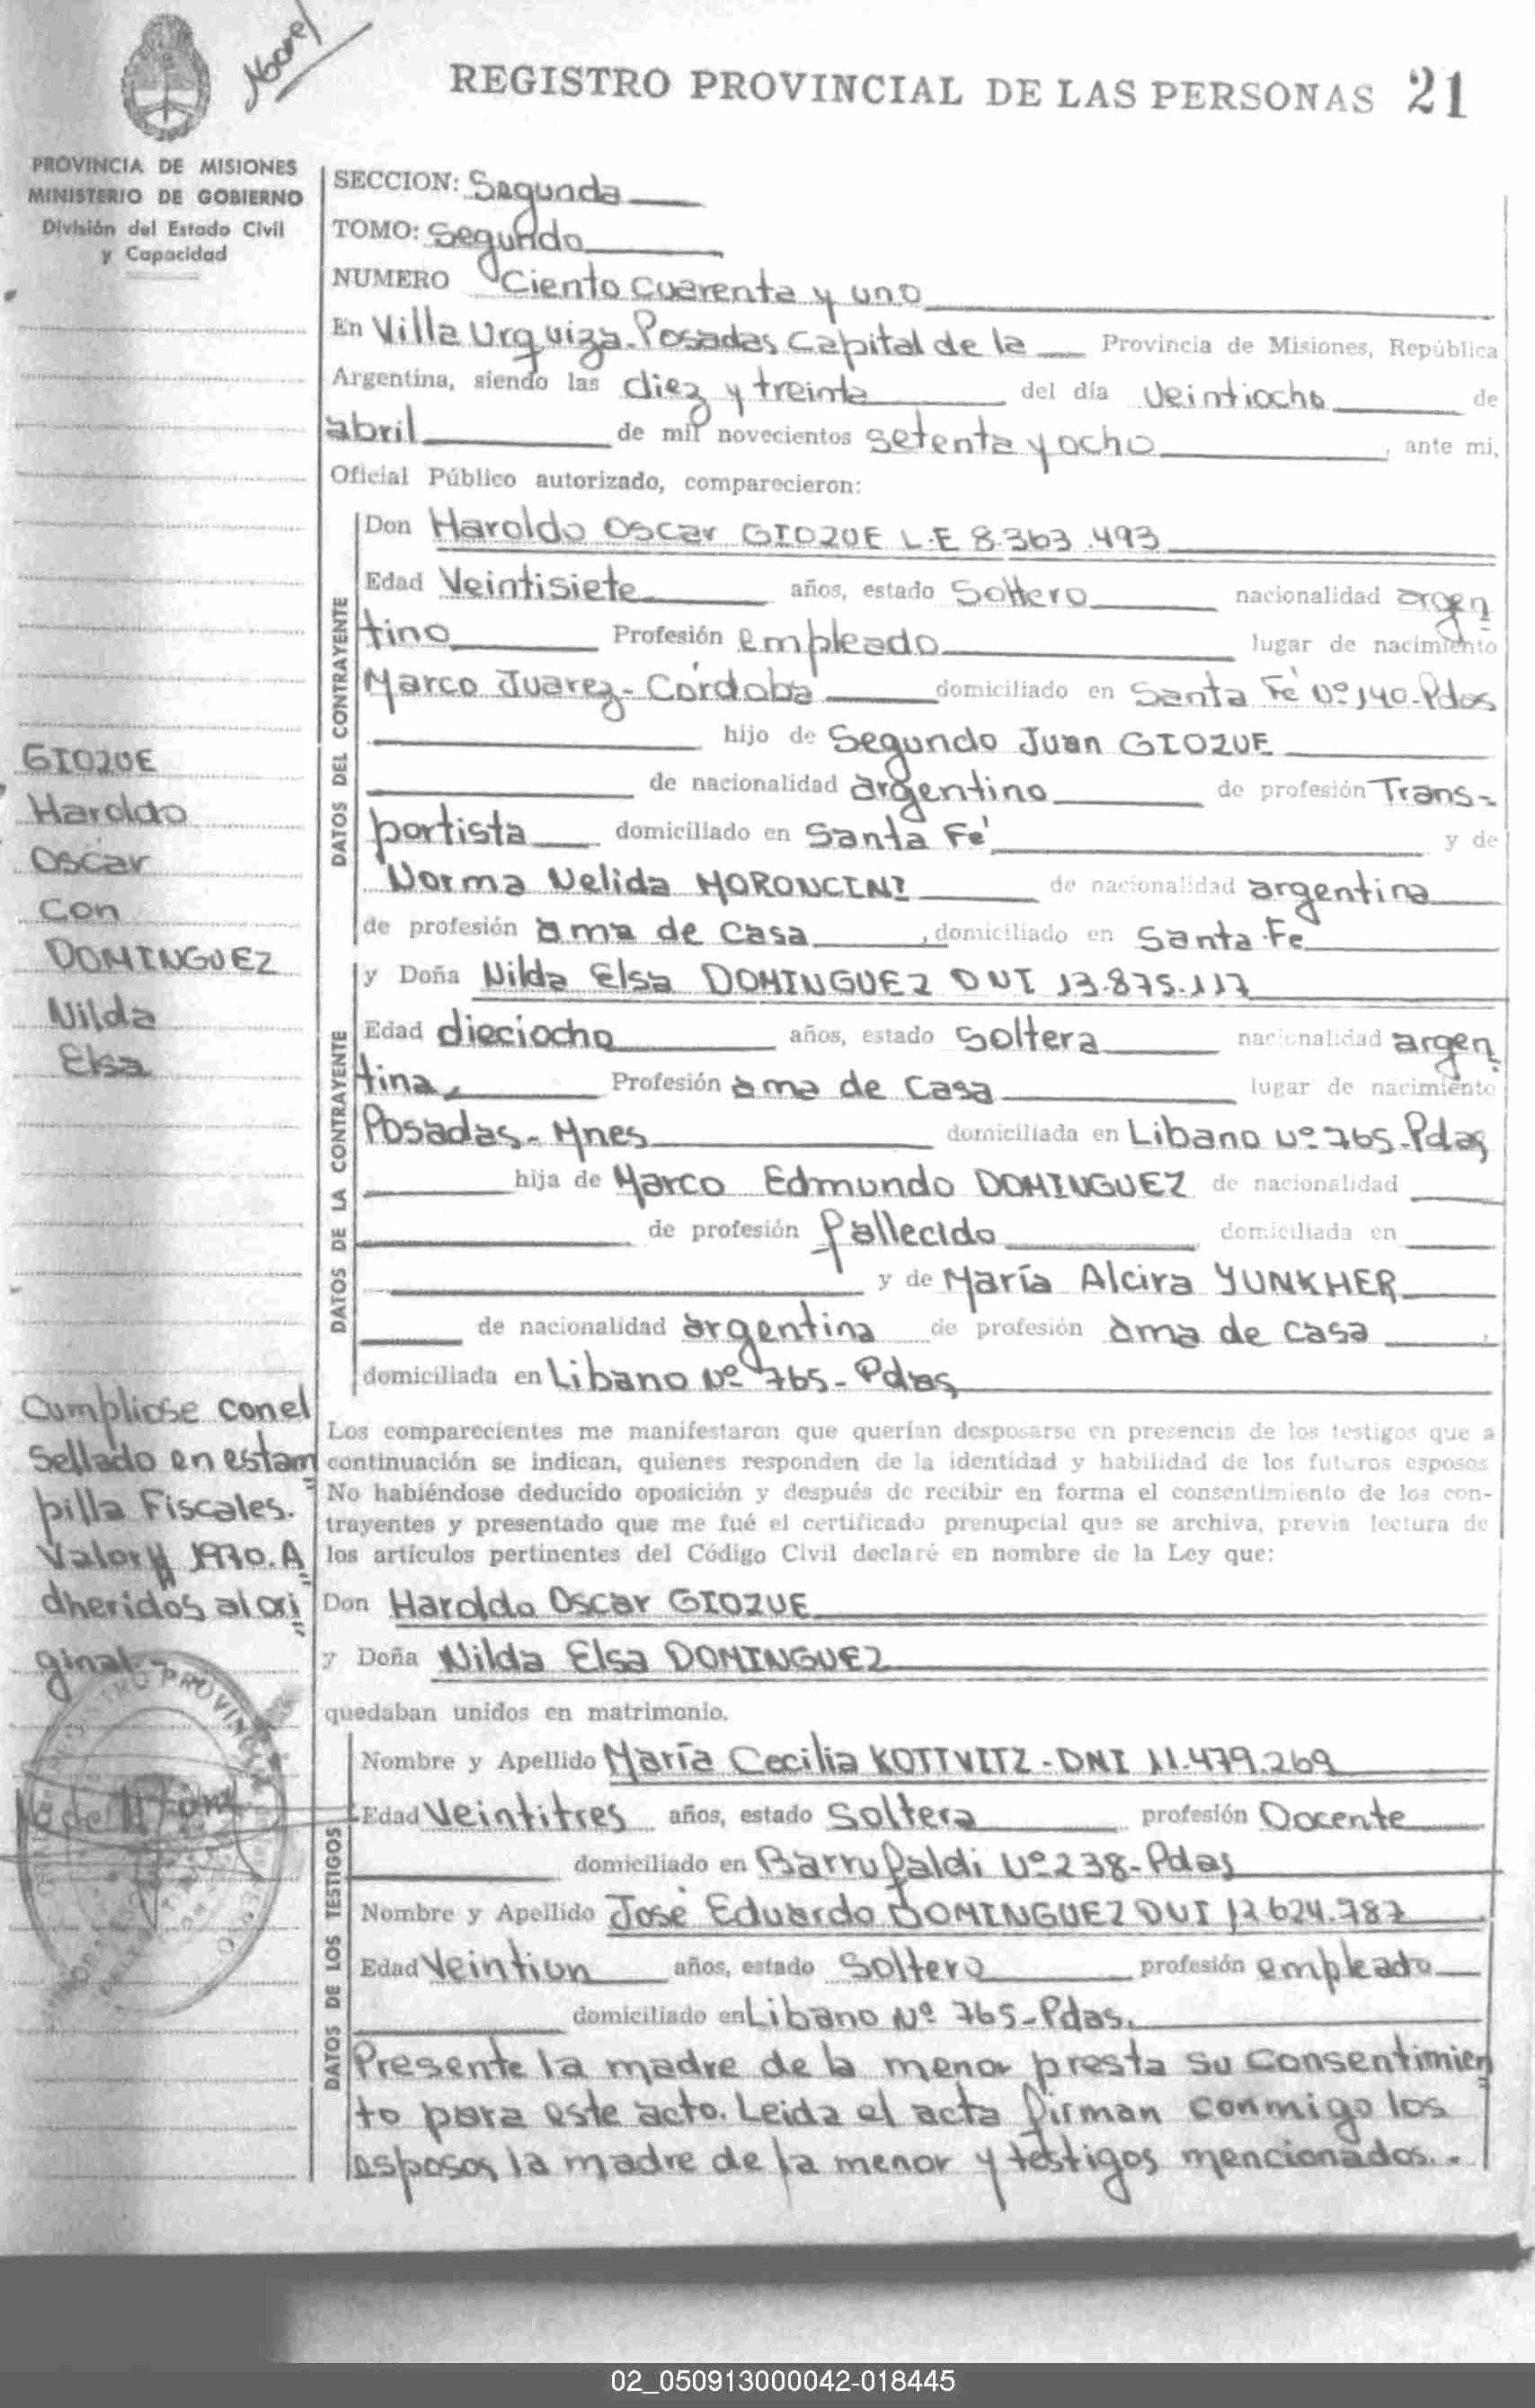 REGISTRO PROVINCIAL DE LAS PERSONAS 21
PROVINCIA DE MISIONES
MINISTERIO DE GOBIERNO
División del Estado Civil
y Capacidad
SECCION: Segunda
TOMO: Segundo
NUMERO Ciento cuarenta y uno
En Villa Urquiza-Posadas Capital de la Provincia de Misiones, República
Argentina, siendo las diez y treinta del día veintiocho de
abril de mil novecientos setenta y ocho, ante mi,
Oficial Público autorizado, comparecieron:
DATOS DEL CONTRAYENTE
Don Haroldo Oscar GIOZUE L.E 8.363.493
Edad Veintisiete años, estado Soltero nacionalidad argen
tino Profesión empleado lugar de nacimiento
Marco Juarez-Córdoba domiciliado en Santa Fé Nº 140-Pdas
hijo de Segundo Juan GIOZUE
de nacionalidad argentino de profesión Trans-
portista domiciliado en Santa Fé y de
Norma Nelida MORONCINI de nacionalidad argentina
de profesión ama de casa, domiciliado en Santa Fe
GIOZUE
Haroldo
Oscar
Con
DOMINGUEZ
Nilda
Elsa
DATOS DE LA CONTRAYENTE
y Doña Nilda Elsa DOMINGUEZ DNI 13.875.117
Edad dieciocho años, estado soltera nacionalidad argen
tina, Profesión ama de casa lugar de nacimiento
Posadas-Mnes domiciliada en Libano Nº 765-Pdas
hija de Marco Edmundo DOMINGUEZ de nacionalidad
de profesión fallecido domiciliada en
y de María Alcira YUNKHER
de nacionalidad argentina de profesión ama de casa,
domiciliada en Libano Nº 765-Pdas
Cumpliose con el
Sellado en estam
pilla Fiscales.
Valor $ 1970. A
dheridos al ori
ginal-
Los comparecientes me manifestaron que querían desposarse en presencia de los testigos que a
continuación se indican, quienes responden de la identidad y habilidad de los futuros esposos
No habiéndose deducido oposición y después de recibir en forma el consentimiento de los con-
trayentes y presentado que me fué el certificado prenupcial que se archiva, previa lectura de
los artículos pertinentes del Código Civil declaré en nombre de la Ley que:
Don Haroldo Oscar GIOZUE
y Doña Nilda Elsa DOMINGUEZ
quedaban unidos en matrimonio.
DATOS DE LOS TESTIGOS
Nombre y Apellido María Cecilia KOTTVITZ-DNI 11.479.269
Edad Veintitres años, estado Soltera profesión Docente
domiciliado en Barrufaldi Nº 238-Pdas
Nombre y Apellido José Eduardo DOMINGUEZ DNI 12624.787
Edad Veintiun años, estado Soltero profesión empleado
domiciliado en Libano Nº 765-Pdas.
Presente la madre de la menor presta su consentimien
to para este acto. Leida el acta firman conmigo los
esposos, la madre de la menor y testigos mencionados.-
02_050913000042-018445